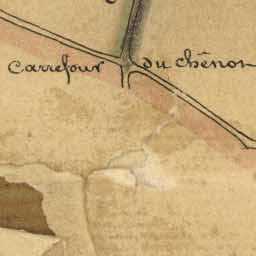 Carrefour du Chênon